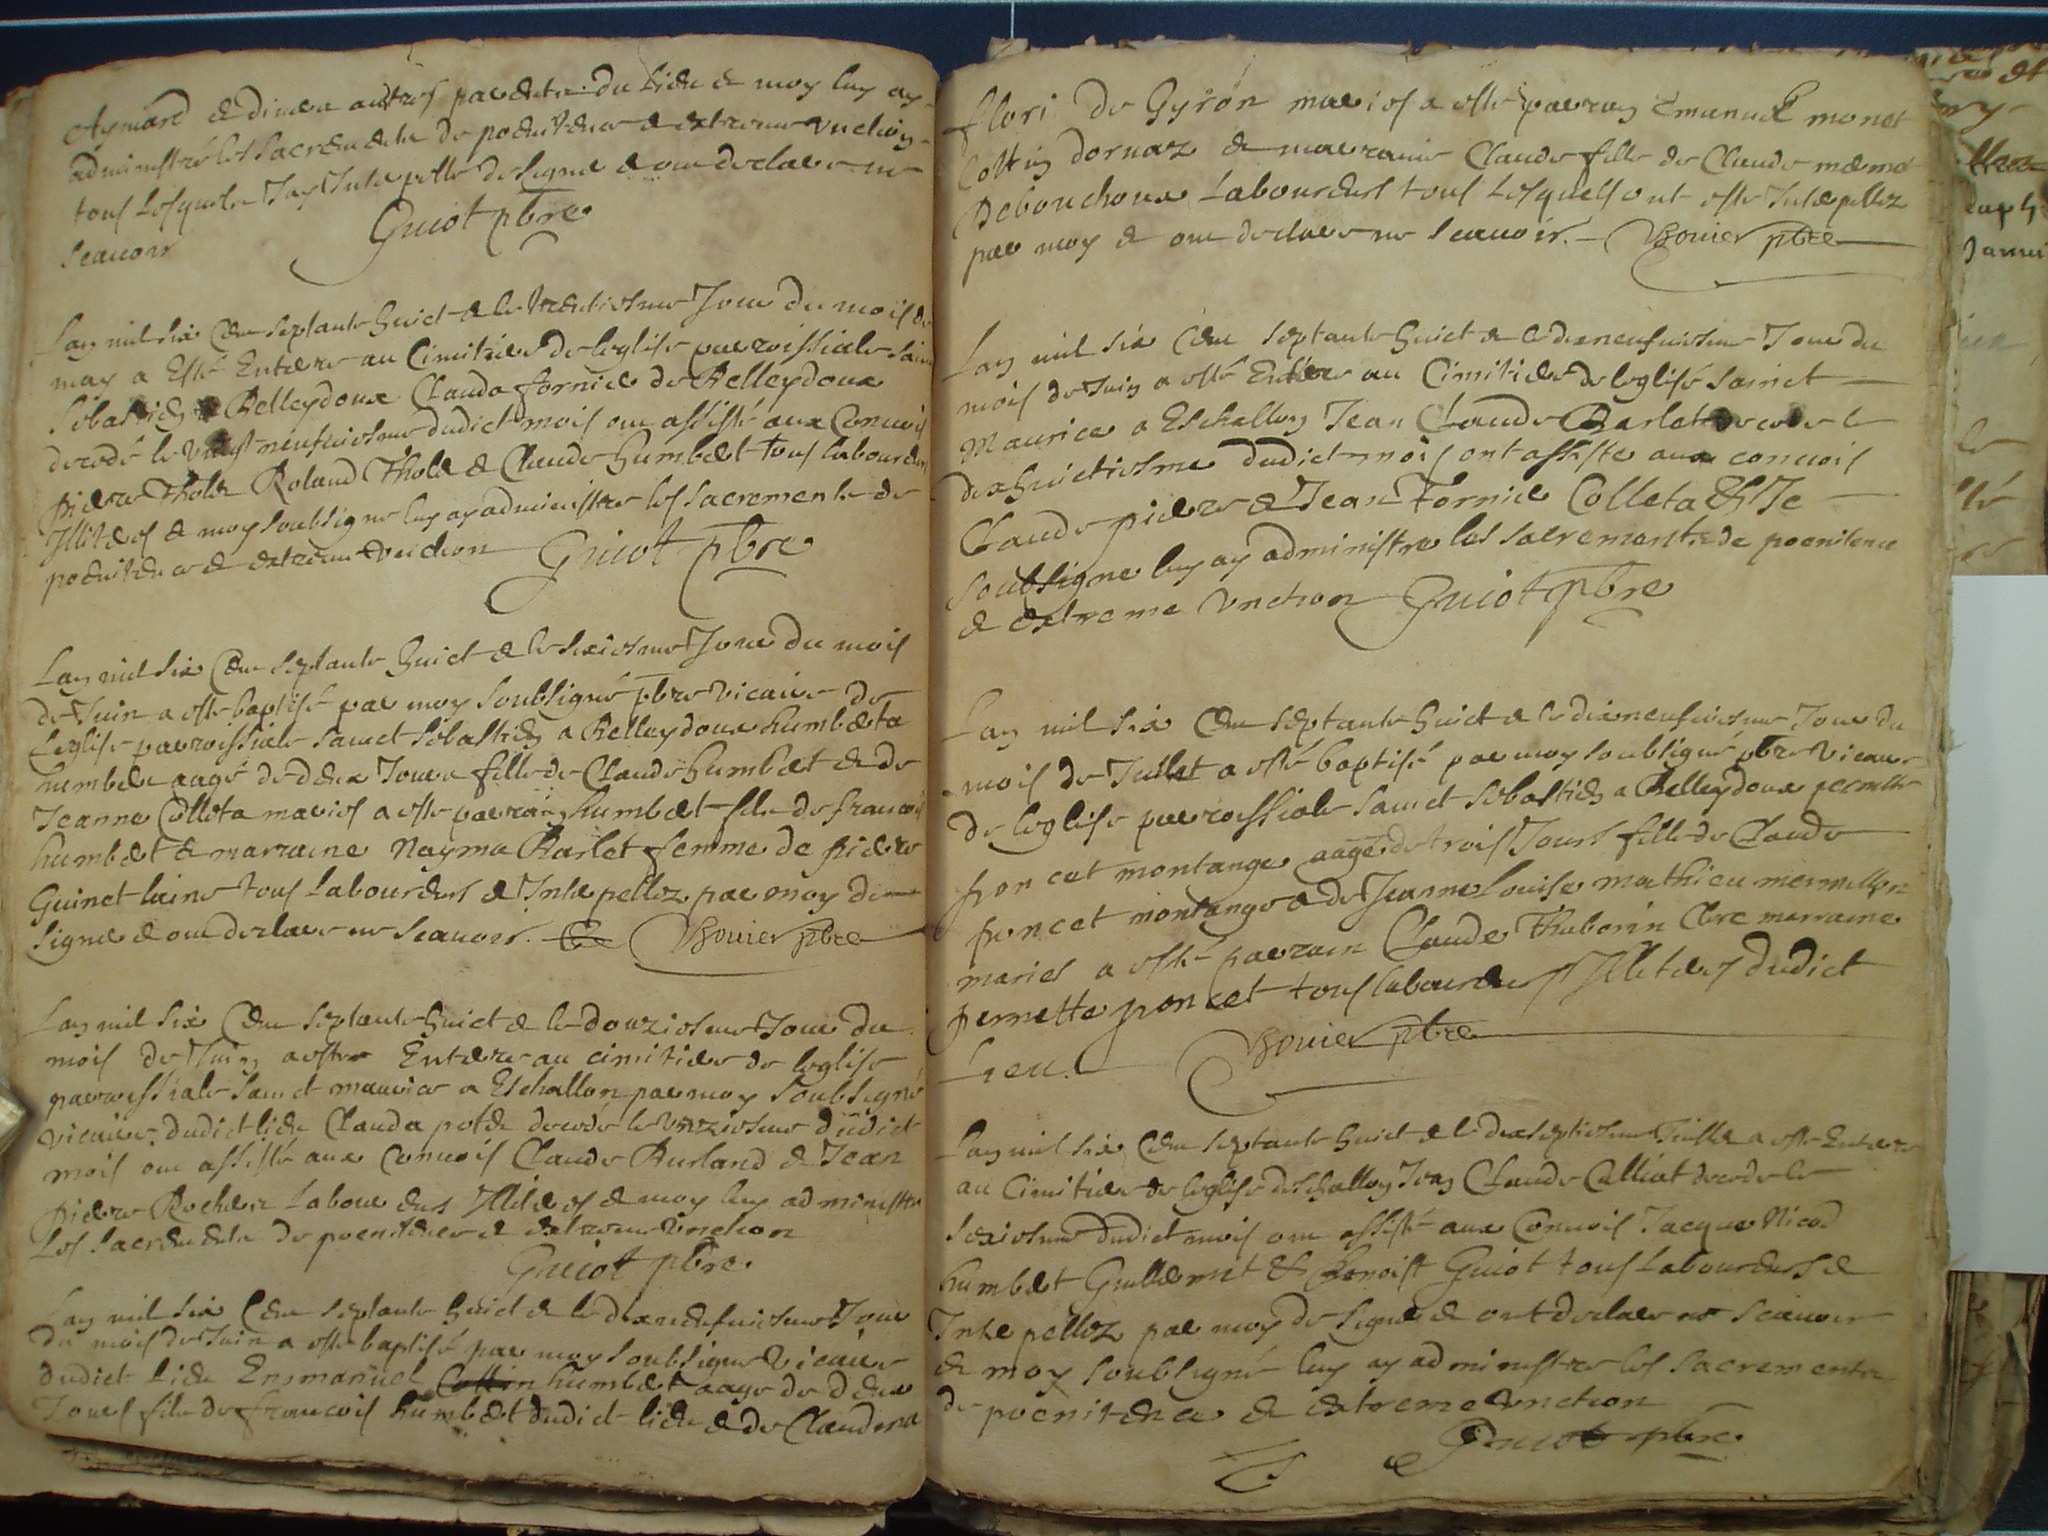 Aymard & divers autres parents du lieu & moy luy ay
administré les sacrements de penitence & extreme unction
tous lesquels Jay Interpellé de signer & ont declare ne
scavoir Guiot pbre
Lan mil six Cent septante huict & le trentiesme Jour du mois de
may a Esté Enterre au Cimitiere de leglise parroissiale sainct
Sebastien Belleydoux Clauda fornier de Belleydoux
decedé le vingt neufuiesme dudict mois ont assisté aux Convois
pierre Roland & Claude humbert tous laboureurs
Illiteres & moy soubsigne luy ay administre les sacrements de
penitence & extreme unction Guiot pbre
Lan mil six Cent septante huict & le sixiesme Jour du mois
de Juin a esté baptisé par moy soubsigné pbre vicaire de
leglise parroissiale sainct sebastien a Belleydoux humberta
humbert aagé de deux Jours fille de Claude humbert & de
Jeanne Colleta maries a esté parrain humbert fils de francois
humbert & marraine Nayma Barlet femme de pierre
Guinet laine tous laboureurs & Interpellez par moy de
signer & ont declare ne scavoir. Bouier pbre
Lan mil six Cent septante huict & le douziesme Jour du
mois de Juing a esté Enterre au cimitiere de leglise
parroissiale sainct maurice a Eschallon par moy soubsigné
vicaire dudict lieu Clauda decedé le unziesme dudict
mois ont assisté aux Convois Claude Burland & Jean
pierre laboureurs Illiteres & moy luy administre
les sacrements de penitence & extreme unction
Guiot pbre.
Lan mil six Cent septante huict & le dixneufuiesme Jour
du mois de Juin a esté baptisé par moy soubsigne vicaire
dudict lieu Enmanuel humbert aage de deux
Jours fils de francois humbert dudict lieu & de Claudena
flori de Gyron maries a esté parrain Emanuel monet
Cottin dornaz & marraine Claude fille de Claude
Debouchoux laboureurs tous lesquels ont esté Interpellez
par moy & ont declare ne scavoir. Bouier pbre
Lan mil six Cent septante huict & le dixneufuiesme Jour du
mois de Juin a esté Enterre au Cimitiere de leglise sainct
Maurice a Eschallon Jean Claude Barlet decede le
dixhuictiesme dudict mois ont assiste aux convois
Claude pierre & Jean Fornier Colleta & Je
soubsigne luy ay administre les sacrements de poenitence
& extreme unction Guiot pbre
Lan mil six Cent septante huict & le dixneufuiesme Jour du
mois de Juillet a esté baptisé par moy soubsigné pbre vicaire
de leglise parroissiale sainct sebastien a Belleydoux pernette
poncet montange aagé de trois Jours fille de Claude
poncet montange & de Jeanne Louise mathieu mermillon
maries a esté parrain Claude Thaborin Clre marraine
pernette poncet tous laboureurs Illiteres dudict
Lieu. Bouier pbre
Lan mil six Cent septante huict & le dixseptiesme Juillet a esté Enterre
au Cimitiere de leglise deschallon Jean Claude Calliat decede le
sexiesme dudict mois ont assisté aux Convois Jacque Nicod
humbert Guillermet & Benoist Guiot tous Laboureurs &
Interpellez par moy de signer & ont declare ne scavoir
& moy soubsigné luy ay administre les sacrements
de poenitence & extreme unction
Guiot pbre